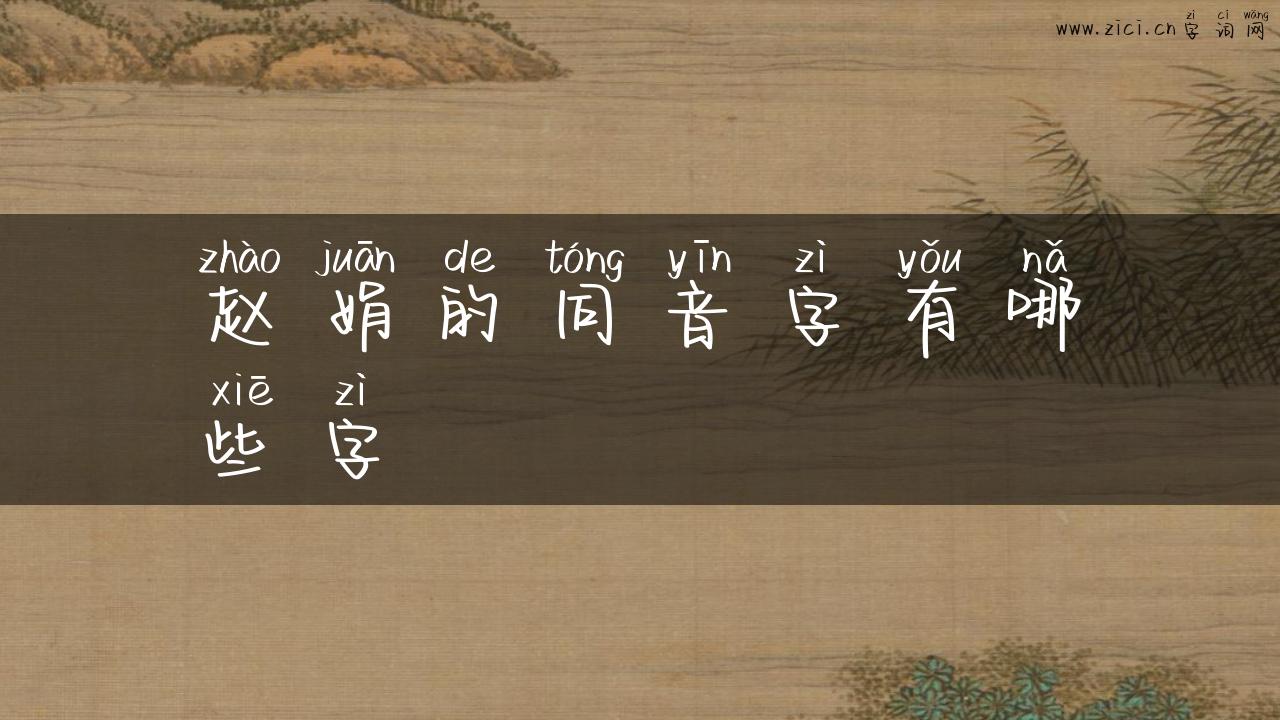 zì cí wǎng
www.zici.cn 字词网
zhào juān de tóng yīn zì yǒu nǎ
赵娟的同音字有哪
xiē zì
些字